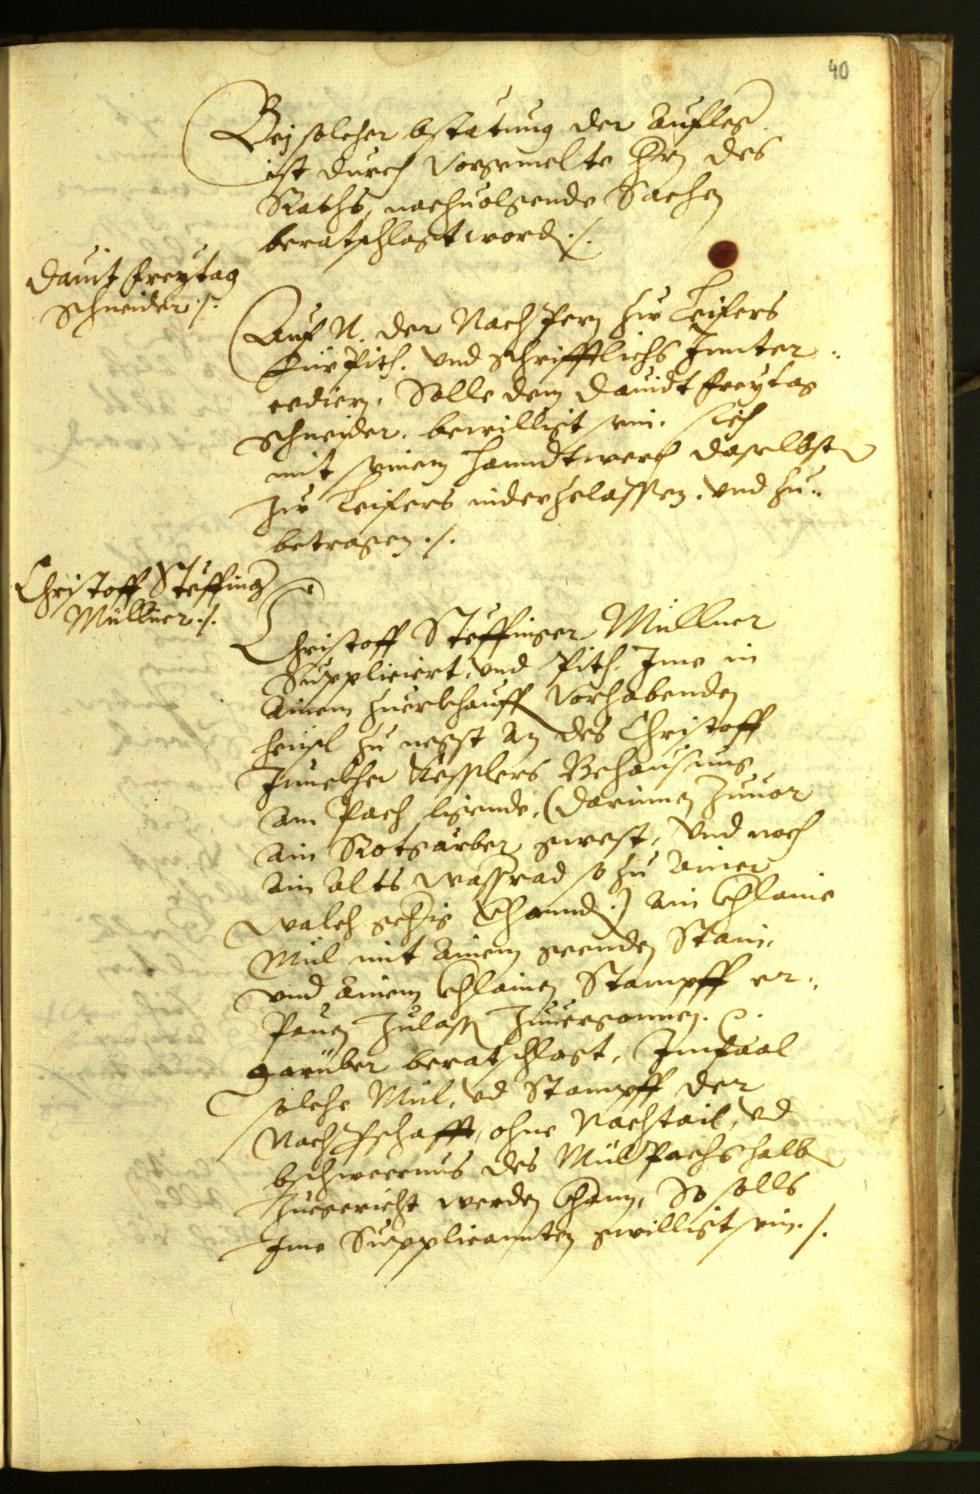 40
Bej solcher bstatung der Aufleg
ist durch vorgemelte Hrn des
Raths, nachuolgende Sachen
beratschlagt word ./.
Dauit Freytag
Schneider ./.
Auf N. der Nachpern zu Leifers
Fürpith. vnd schrifftlichs Innter-
cediern. Solle dem Dauidt Freytag
Schneider. bewilligt sein. sich
mit seinem Hanndtwerch daselbst
zu Leifers niderzelassen. vnd zu-
betragen ./.
Christoff Steffinger
Müllner ./.
Christoff Steffinger Müllner
Suppliciert, vnd Pith. Jme in
ainem zuerkhauff vorhabenden
heusl zu negst an des Christoff
Kesslers Behausung
am Pach ligende, (darinnen zuuor
ain Rotgärber gwest, vnd noch
ain alts Wassrad so zu ainer
walch khannd) ain khlaine
Mül mit ainem geenden Stain,
vnd ainem khlainen Stampff er-
Pauen zulassen zuuergonnen.
Darüber beratschlagt, Imfaal
solche Mül, vd Stampff der
Nachpschafft, ohne Nachtail, vd
bschweernus des Mülpachs halb
zuegericht werden khann, So solls
Jme Supplicannten gwilligt sein ./.